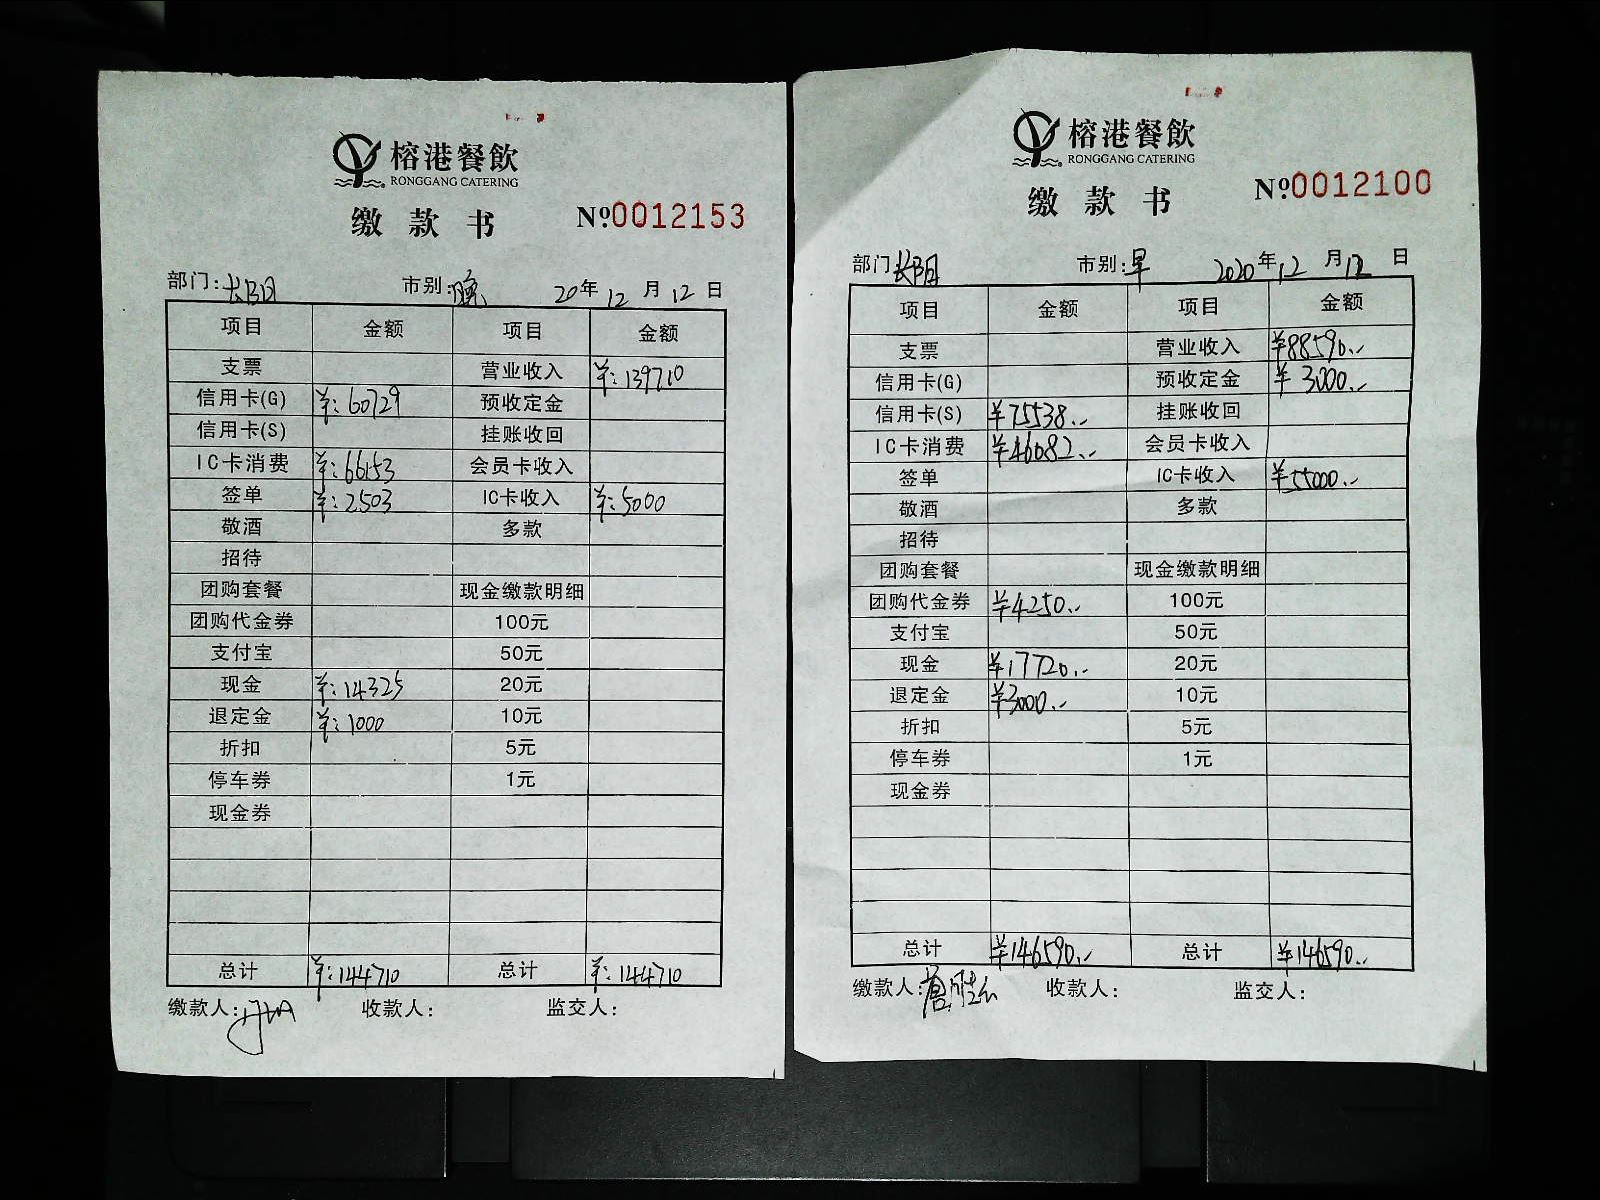 榕港餐飲
RONGGANG CATERING
缴款书 №0012153
部门：长阳 市别：晚 20年12月12日
项目 金额 项目 金额
支票 营业收入 ¥：139710
信用卡(G) ¥：60729 预收定金
信用卡(S) 挂账收回
IC卡消费 ¥：66153 会员卡收入
签单 ¥：2503 IC卡收入 ¥：5000
敬酒 多款
招待
团购套餐 现金缴款明细
团购代金券 100元
支付宝 50元
现金 ¥：14325 20元
退定金 ¥：1000 10元
折扣 5元
停车券 1元
现金券
总计 ¥：144710 总计 ¥：144710
缴款人： 收款人： 监交人：
榕港餐飲
RONGGANG CATERING
缴款书 №0012100
部门 长阳 市别：早 2020年12月12日
项目 金额 项目 金额
支票 营业收入 ¥88590.-
信用卡(G) 预收定金 ¥3000.-
信用卡(S) ¥75538.- 挂账收回
IC卡消费 ¥46082.- 会员卡收入
签单 IC卡收入 ¥55000.-
敬酒 多款
招待
团购套餐 现金缴款明细
团购代金券 ¥4250.- 100元
支付宝 50元
现金 ¥17720.- 20元
退定金 ¥3000.- 10元
折扣 5元
停车券 1元
现金券
总计 ¥146590.- 总计 ¥146590.-
缴款人： 收款人： 监交人：